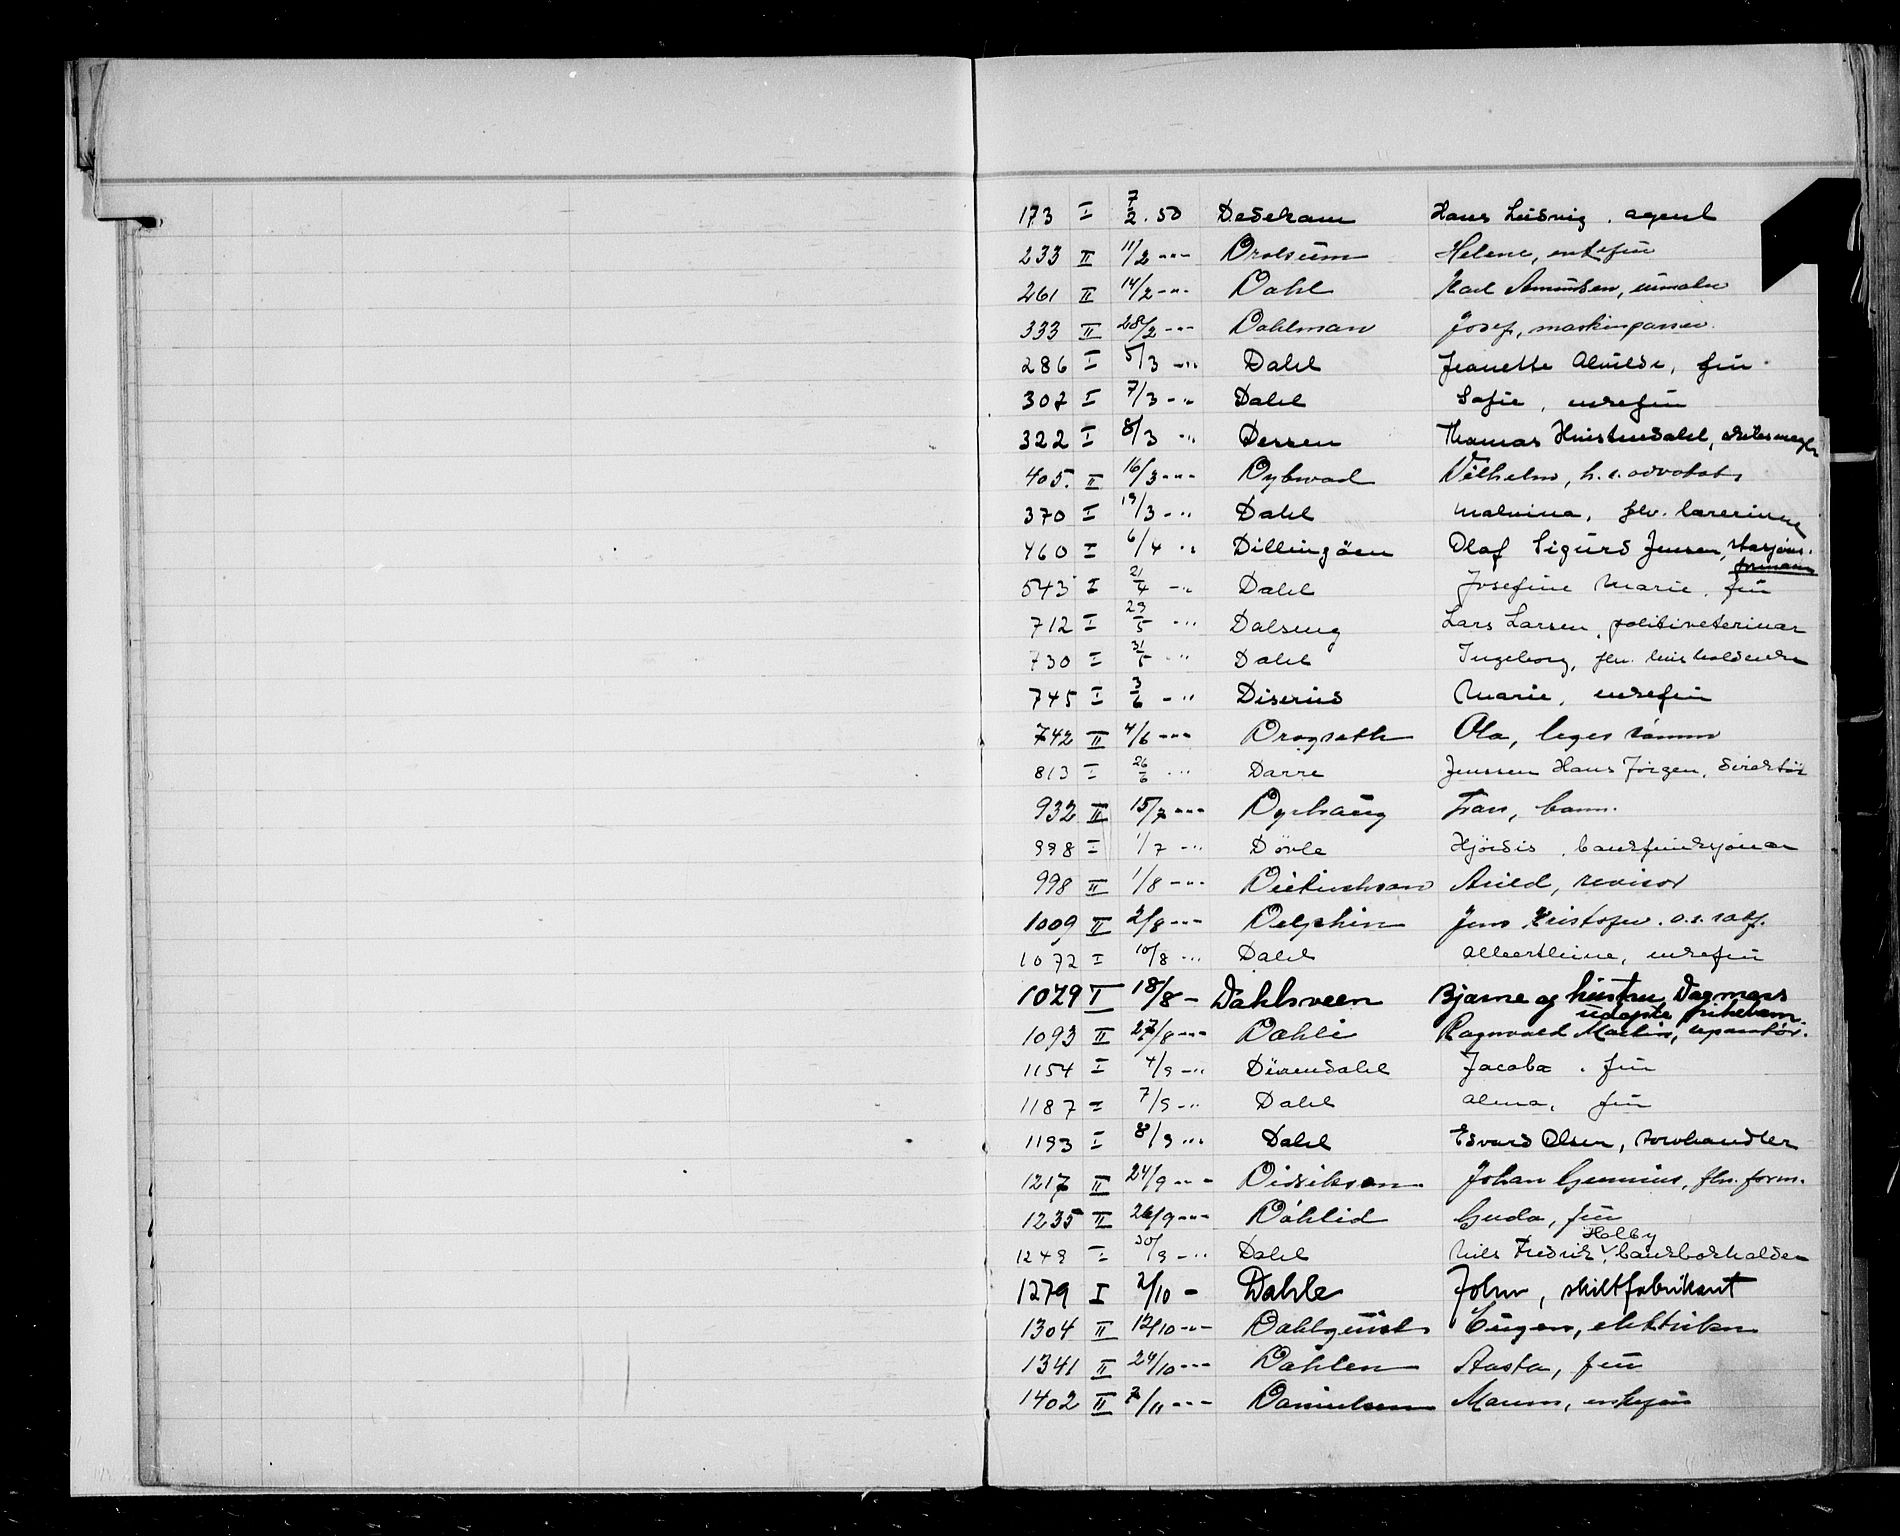 173 I 7/2.50 Dedekam Hans Ludvig, agent
233 II 11/2 -"- Drolsum Helene, enkefru
261 II 14/2 -"- Dahl Karl Amundsen, urmaker
333 II 28/2 -"- Dahlman Josef, maskinpasser.
286 I 5/3 -"- Dahl Jeanette Alvilde, fru
307 I 7/3 -"- Dahl Sofie, enkefru
322 I 8/3 -"- Dessen Thomas, skibsmegler
405. II 16/3 -"- Dybwad Vilhelm, h.r.advokat
370 I 19/3 -"- Dahl Malvina, fhv. lærerinne
460 I 6/4 -"- Dillingöen Olaf Sigurd Jensen, stasjons-
formann
543 I 21/4 -"- Dahl Josefine Marie, fru
712 I 23/5 -"- Dalseng Lars Larsen, politiveterinær
730 I 31/5 -"- Dahl Ingeborg, fhv. husholderske
745 I 3/6 -"- Diserud Marie, enkefru
742 II 4/6 -"- Dragseth Ola,
813 I 26/6 -"- Darre Jenssen Hans Jörgen, direktör
932 II 15/7 -"- Dyrhaug barn.
998 I 1/7 -"- Dövle Hjördis, bankfunksjonær
998 II 1/8 -"- Dietrichson Arild, revisor
1009 II 2/8 -"- Delphin Jens Kristofer. o.r.sakf.
1072 I 10/8 -"- Dahl Albertine, enkefru
1029 I 18/8 - Dahlsveen Bjarne og hustru Dagmars
udöpte pikebarn
1093 II 27/8 -"- Dahli Ragnvald Martin, reparatör.
1154 I 4/9 -"- Dürendahl Jacoba, fru
1187 I 7/9 -"- Dahl Alma, fru
1193 I 8/9 -"- Dahl Edvard Olsen,
1217 II 24/9 -"- Didriksen Johan Gunnius, fhv. form.
1235 II 26/9 -"- Dåhlid Guda, fru
Holby
1249 I 30/9 -"- Dahl Nils Fredrik, bankbokholder
1279 I 2/10 - Dahle John, skiltfabrikant
1304 II 12/10 -"- Dahlquist Eugen, elektriker
1341 II 24/10 -"- Dahlen Aasta, fru
1402 II 7/11 -"- Danielsen Maren, enkefru